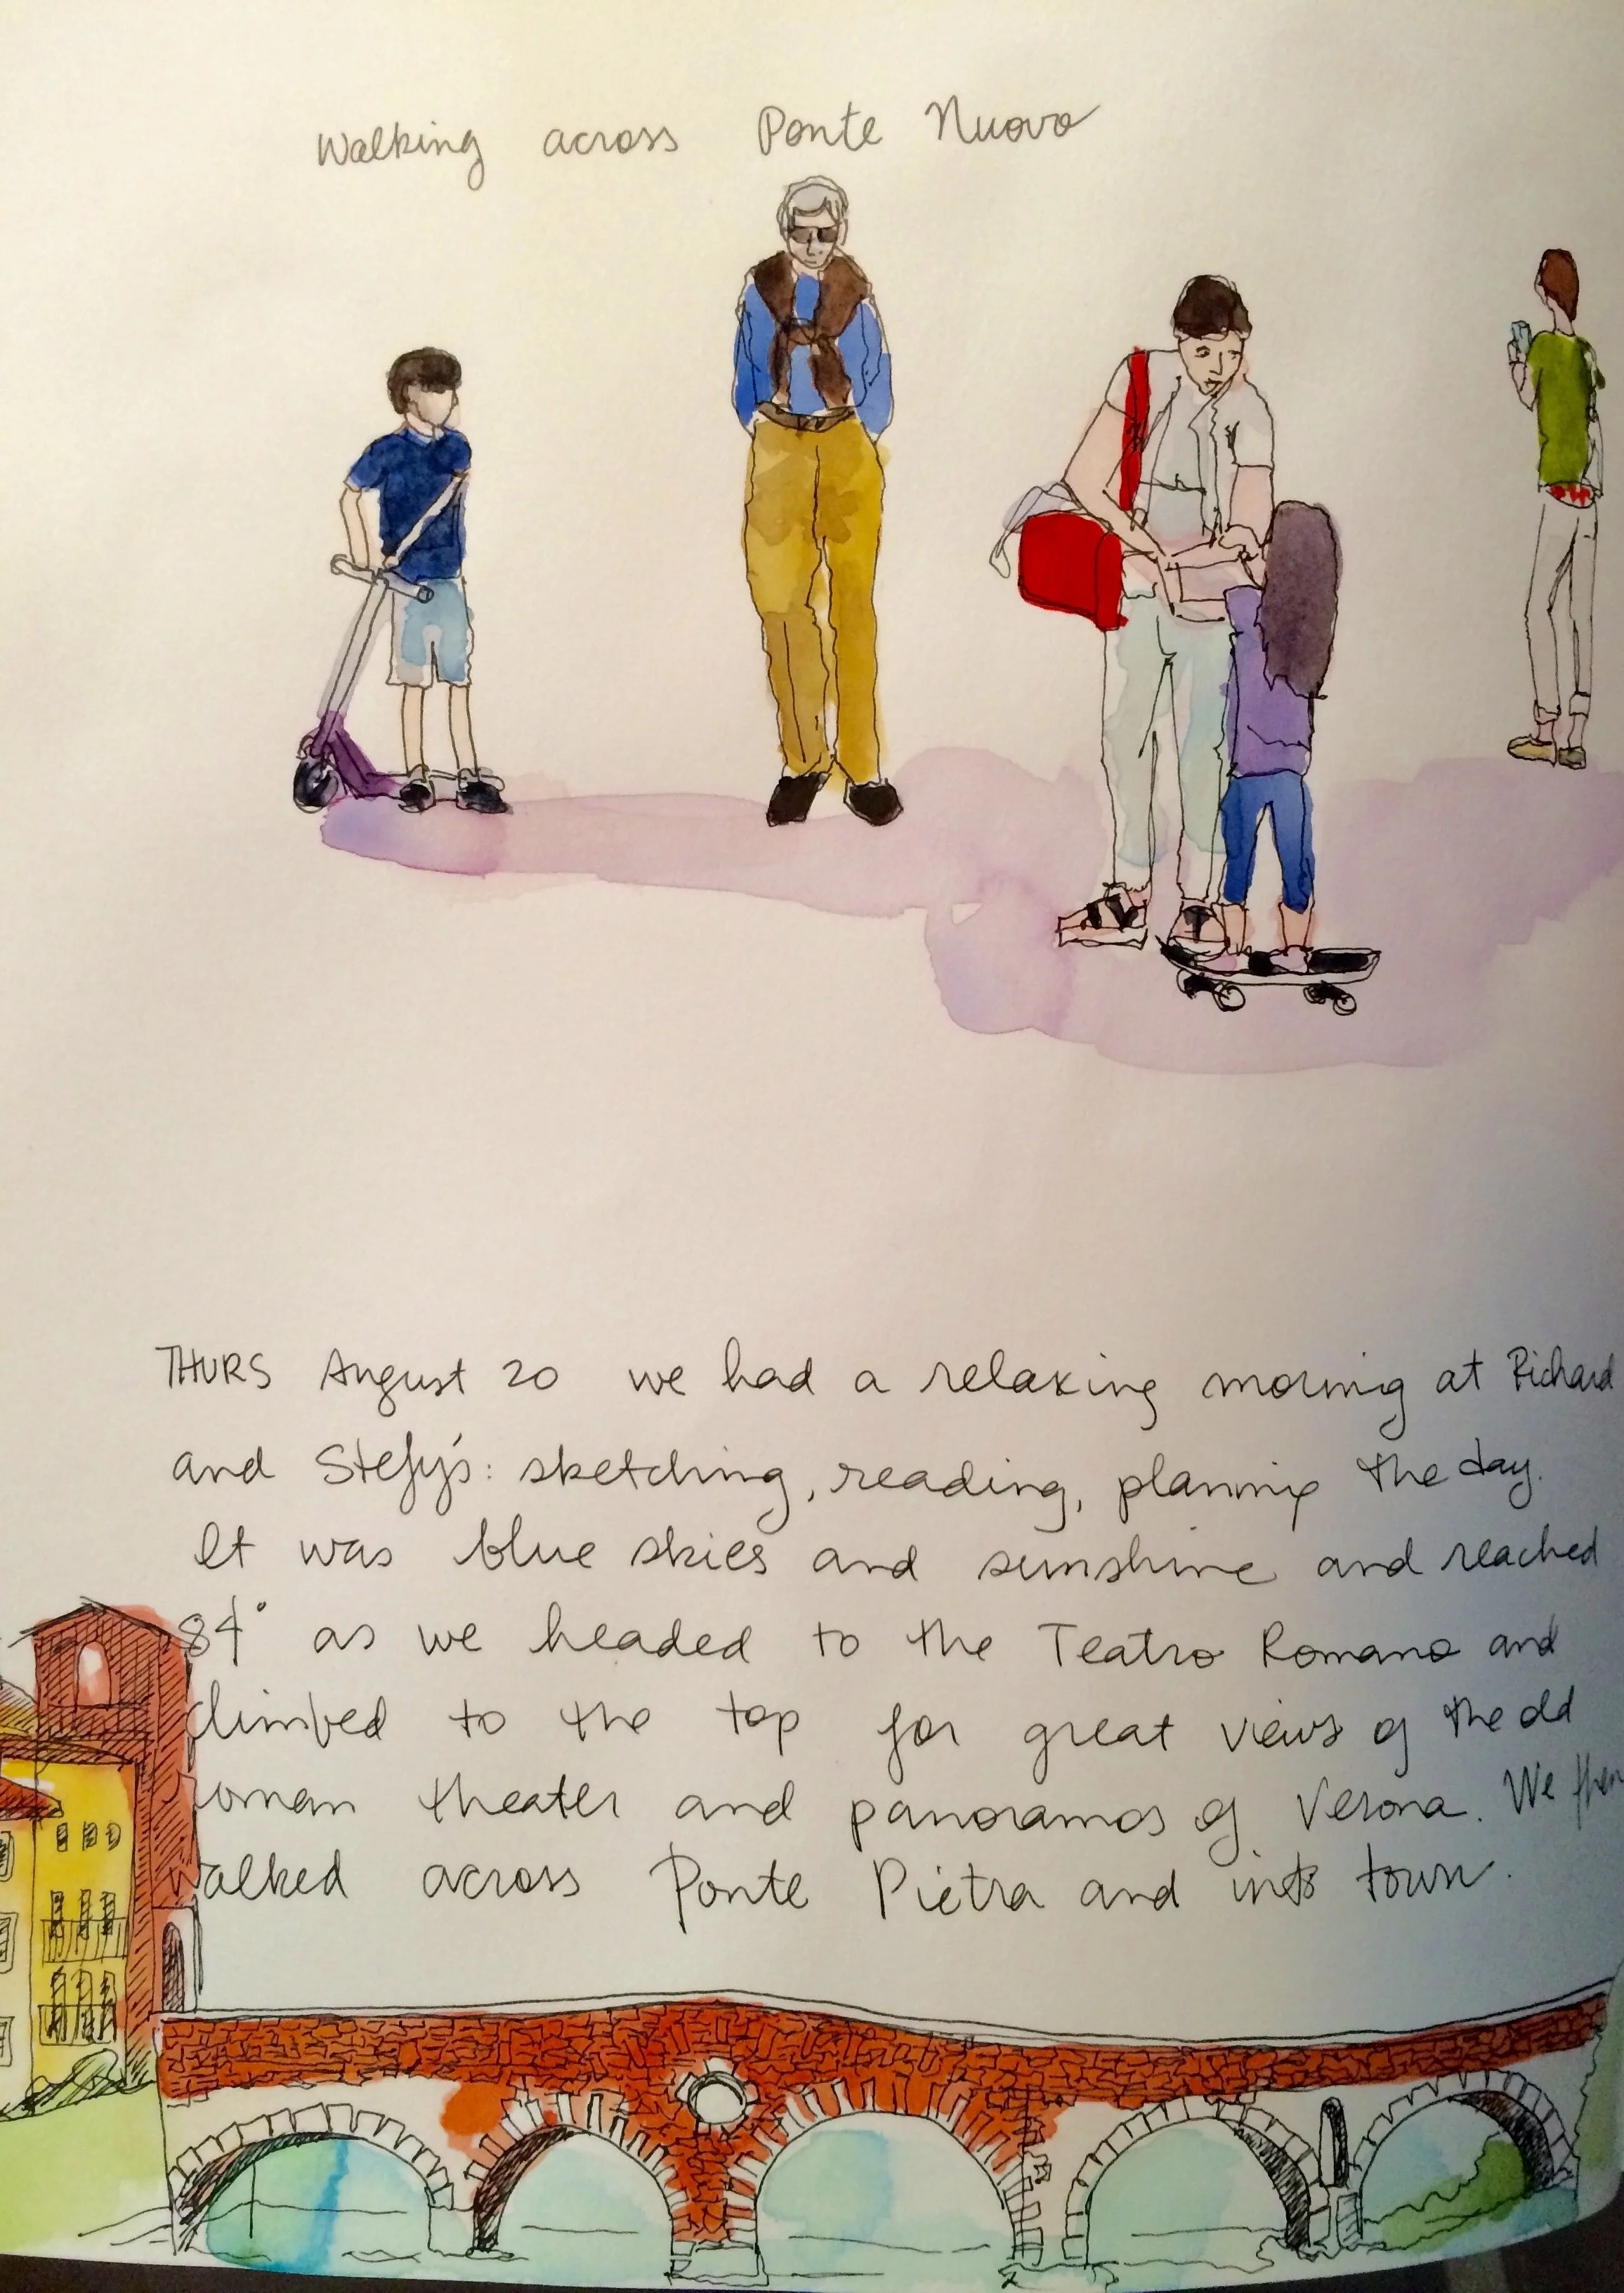 Walking across Ponte Nuovo
THURS August 20 we had a relaxing morning at Richard
and Stefy's: sketching, reading, planning the day.
It was blue skies and sunshine and reached
84° as we headed to the Teatro Romano and
climbed to the top for great views of the old
roman theater and panoramas of Verona. We then
walked across Ponte Pietra and into town.